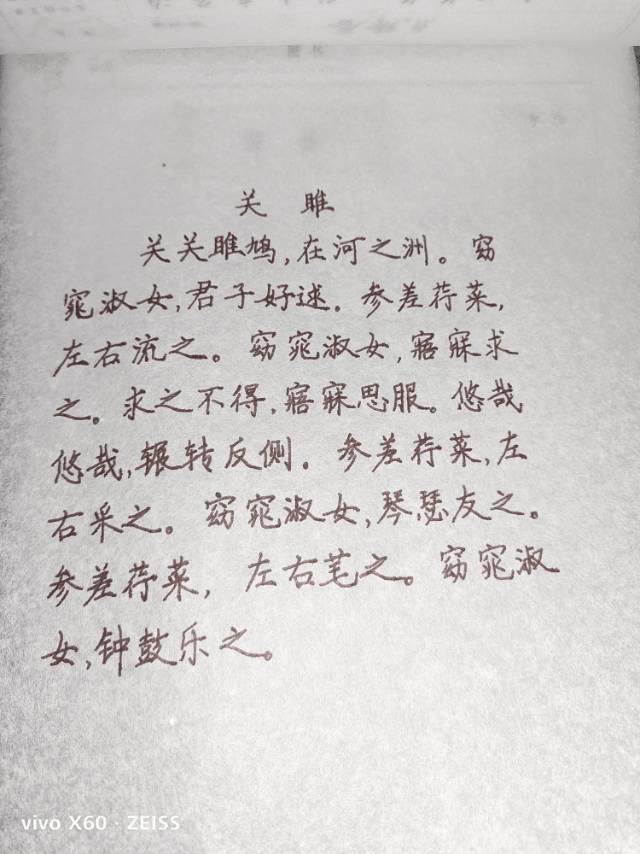 关雎
关关雎鸠,在河之洲。窈
窕淑女,君子好逑。参差荇菜,
左右流之。窈窕淑女,寤寐求
之。求之不得,寤寐思服。悠哉
悠哉,辗转反侧。参差荇菜,左
右采之。窈窕淑女,琴瑟友之。
参差荇菜,左右芼之。窈窕淑
女,钟鼓乐之。
vivo X60 · ZEISS